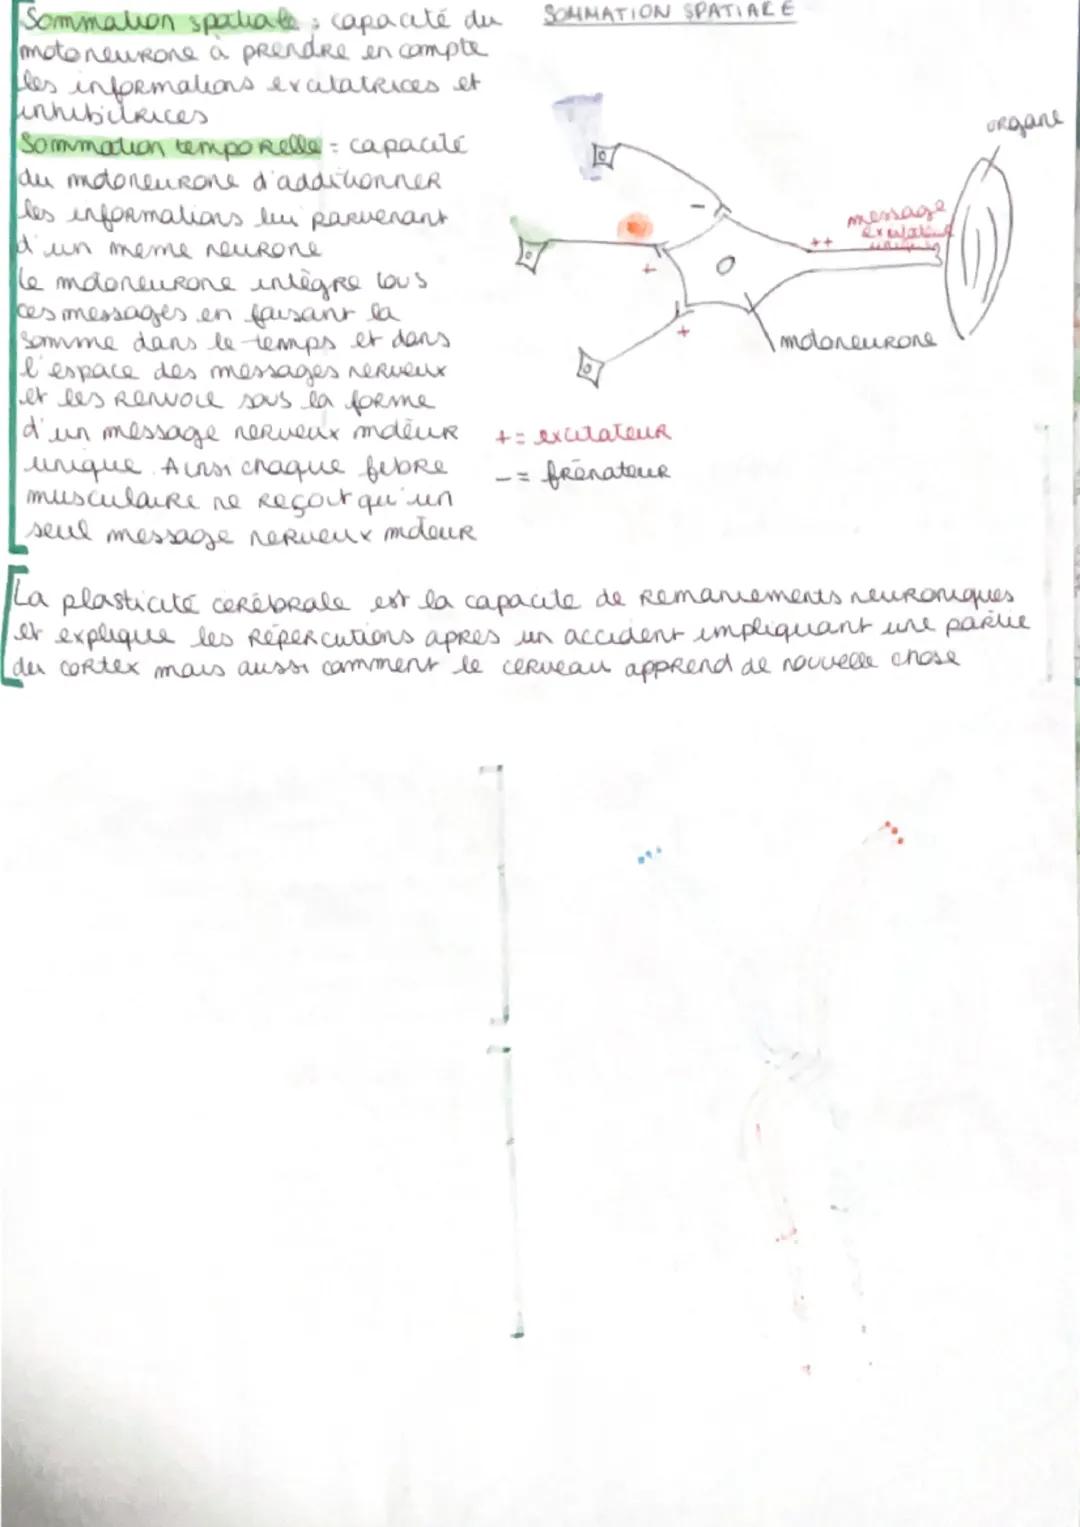 Sommation spatiale : capacité du
motoneurone à prendre en compte
les informations excitatrices et
inhibitrices
Sommation temporelle = capacité
du motoneurone d'additionner
les informations lui parvenant
d'un meme neurone
Le motoneurone intègre tous
ces messages en faisant la
somme dans le temps et dans
l'espace des messages nerveux
et les renvoie sous la forme
d'un message nerveux moteur
unique. Ainsi chaque fibre
musculaire ne reçoit qu'un
seul message nerveux moteur
SOMMATION SPATIALE
organe
message
excitateur
unique
-
++
+
+
motoneurone
+ = excitateur
- = frénateur
La plasticité cérébrale est la capacité de remaniements neuroniques
et explique les répercutions apres un accident impliquant une partie
du cortex mais aussi comment le cerveau apprend de nouvelle chose